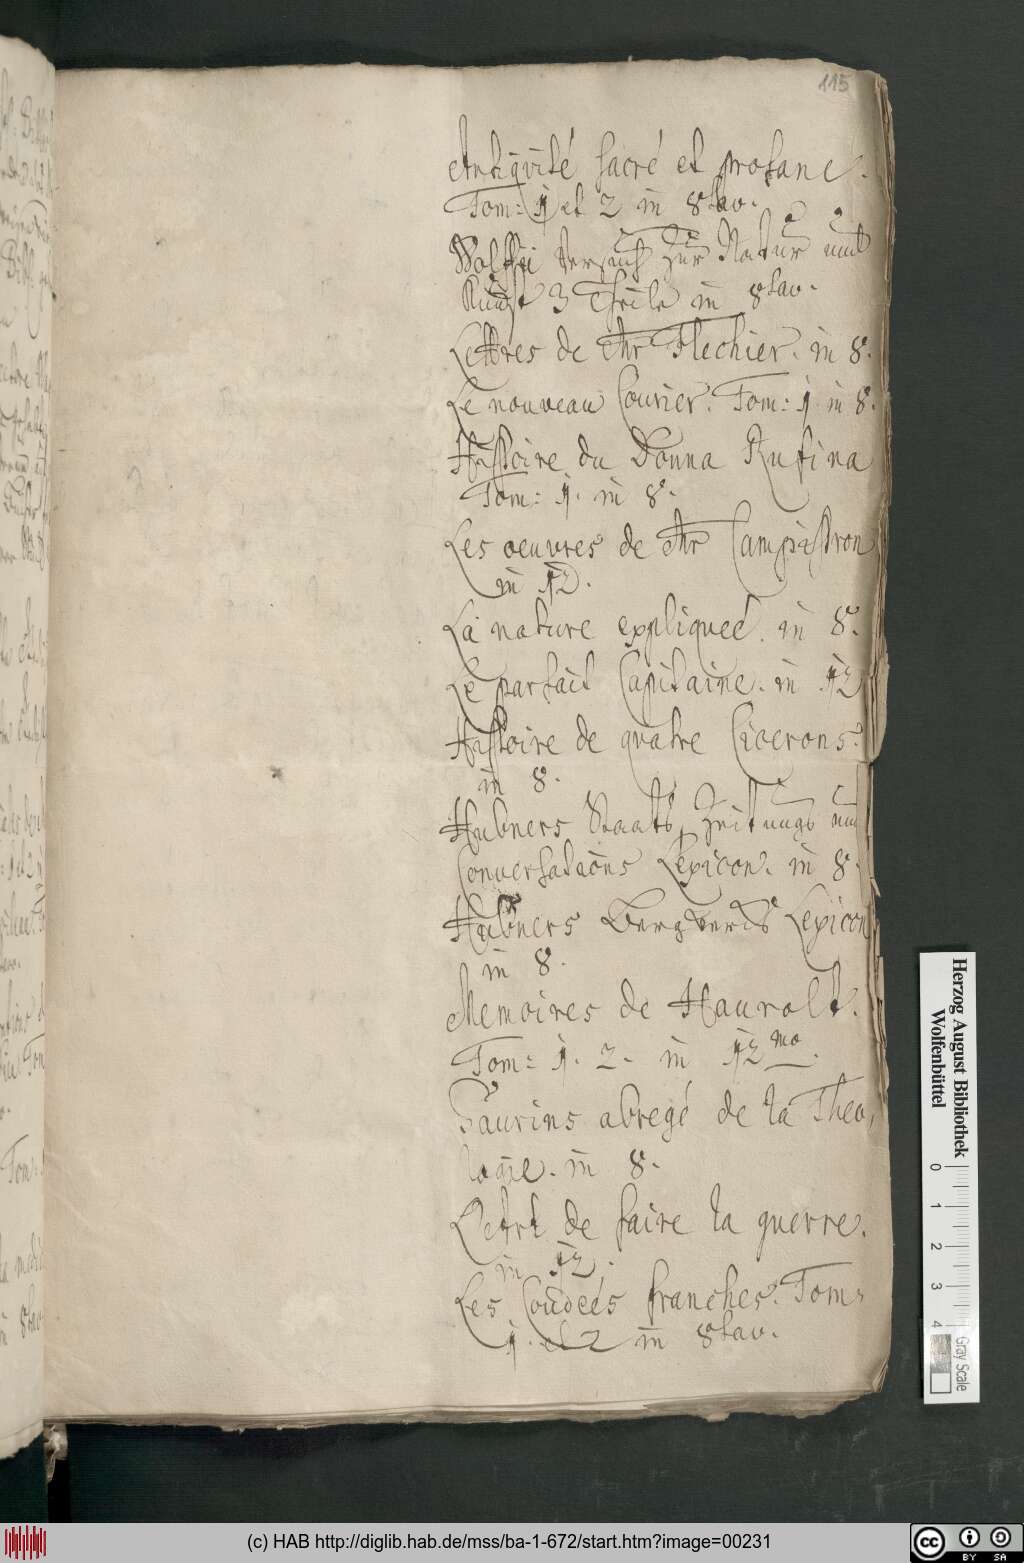 115
Antiquité sacré et profane.
Tom: 1 et 2 in 8tav.
Wolffii Versuch zur Natur und
Kunst 3 Theile in 8tav.
Lettres de Mr Flechier. in 8.
Le nouveau Courier. Tom: 1. in 8.
Histoire du Donna Rufina
Tom: 1. in 8.
Les oeuvres de Mr Campistron
in 12.
La nature expliqueé. in 8.
Le parfait Capitaine. in 12
Histoire de quatre Cicerons.
in 8.
Hübners Staats Zeitungs und
Conversations Lexicon. in 8.
Hübners Bergwercks Lexicon
in 8.
Memoires de Hauvolt.
Tom: 1. 2. in 12mo.
Saurins abregé de la Theo,
logie. in 8.
L'Art de faire la guerre.
in 12.
Les Coudeés franches. Tom:
1. et 2 in 8tav.
Herzog August Bibliothek
Wolfenbüttel
0 1 2 3 4
Gray Scale
(c) HAB http://diglib.hab.de/mss/ba-1-672/start.htm?image=00231
cc BY SA